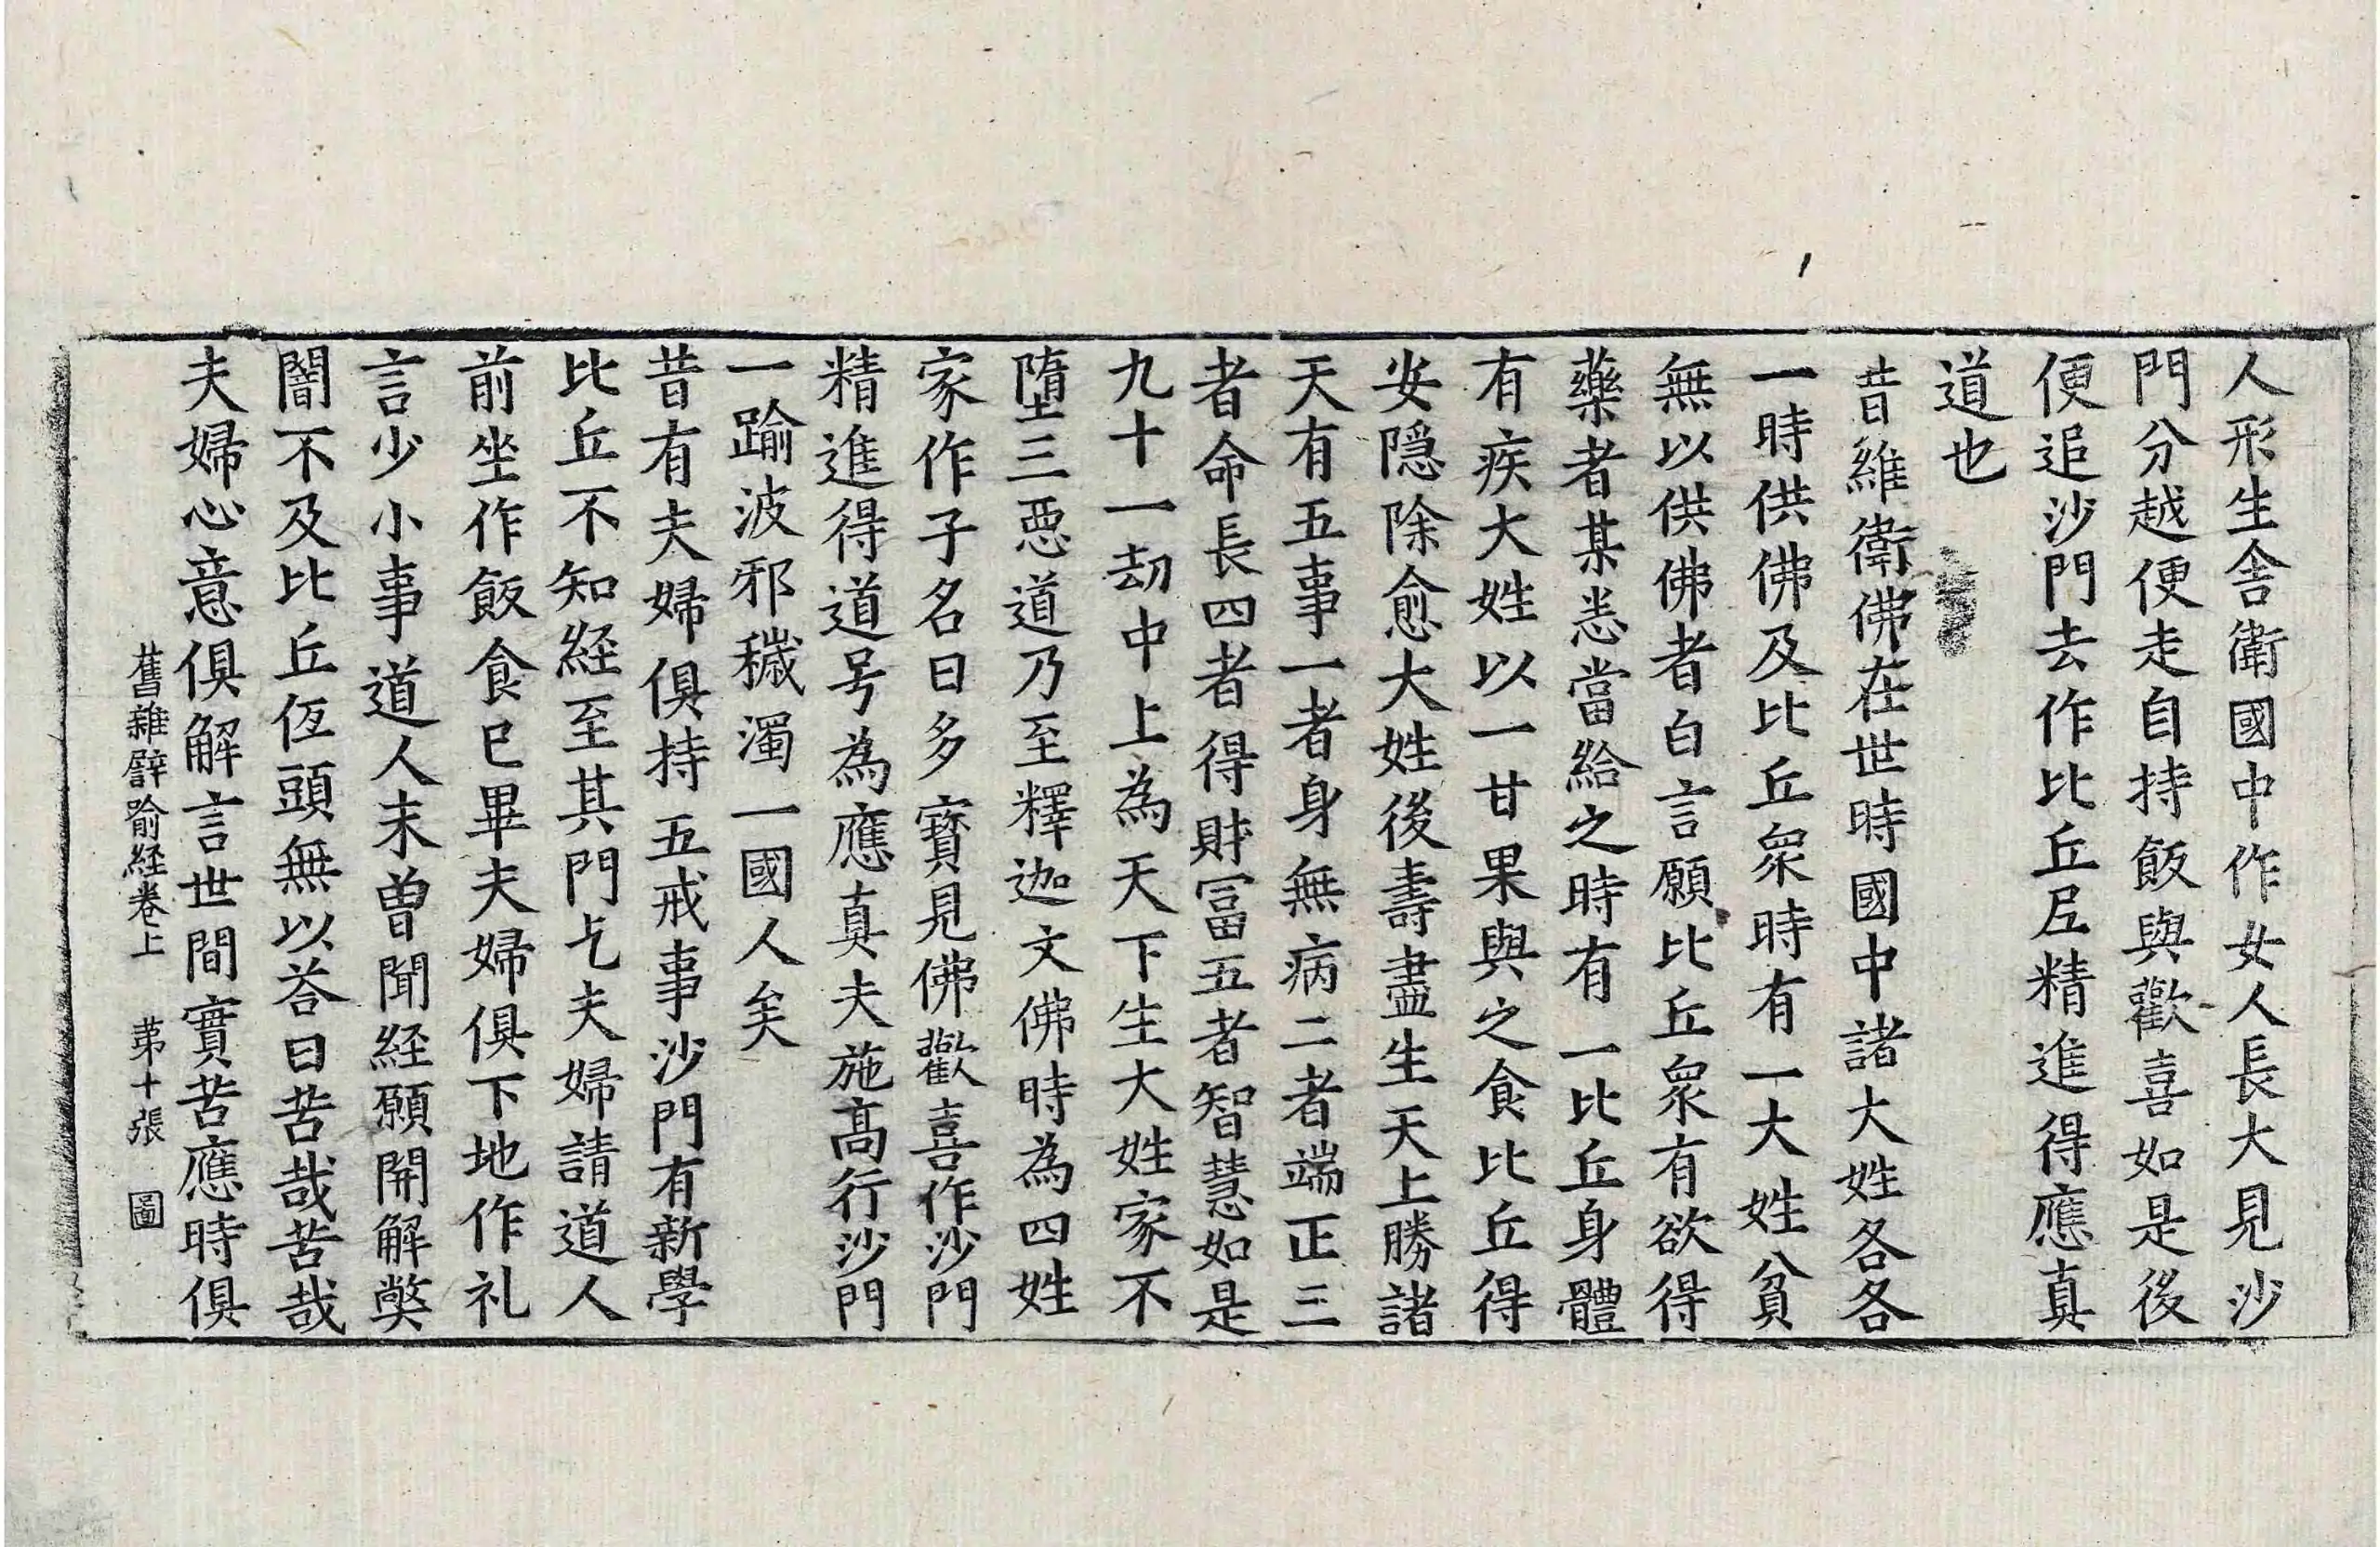 人形生舍衛國中作女人長大見沙
門分越便走自持飯與歡喜如是後
便追沙門去作比丘尼精進得應真
道也
昔維衛佛在世時國中諸大姓各各
一時供佛及比丘眾時有一大姓貧
無以供佛者白言願比丘眾有欲得
藥者某悉當給之時有一比丘身體
有疾大姓以一甘果與之食比丘得
安隱除愈大姓後壽盡生天上勝諸
天有五事一者身無病二者端正三
者命長四者得財冨五者智慧如是
九十一劫中上為天下生大姓家不
墮三惡道乃至釋迦文佛時為四姓
家作子名曰多寶見佛歡喜作沙門
精進得道号為應真夫施高行沙門
一踰波邪穢濁一國人矣
昔有夫婦俱持五戒事沙門有新學
比丘不知経至其門乞夫婦請道人
前坐作飯食已畢夫婦俱下地作礼
言少小事道人末曾聞経願開解獘
闇不及比丘仾頭無以荅曰苦哉苦哉
夫婦心意俱解言世間實苦應時俱
舊雜譬喻経卷上 苐十張 圖